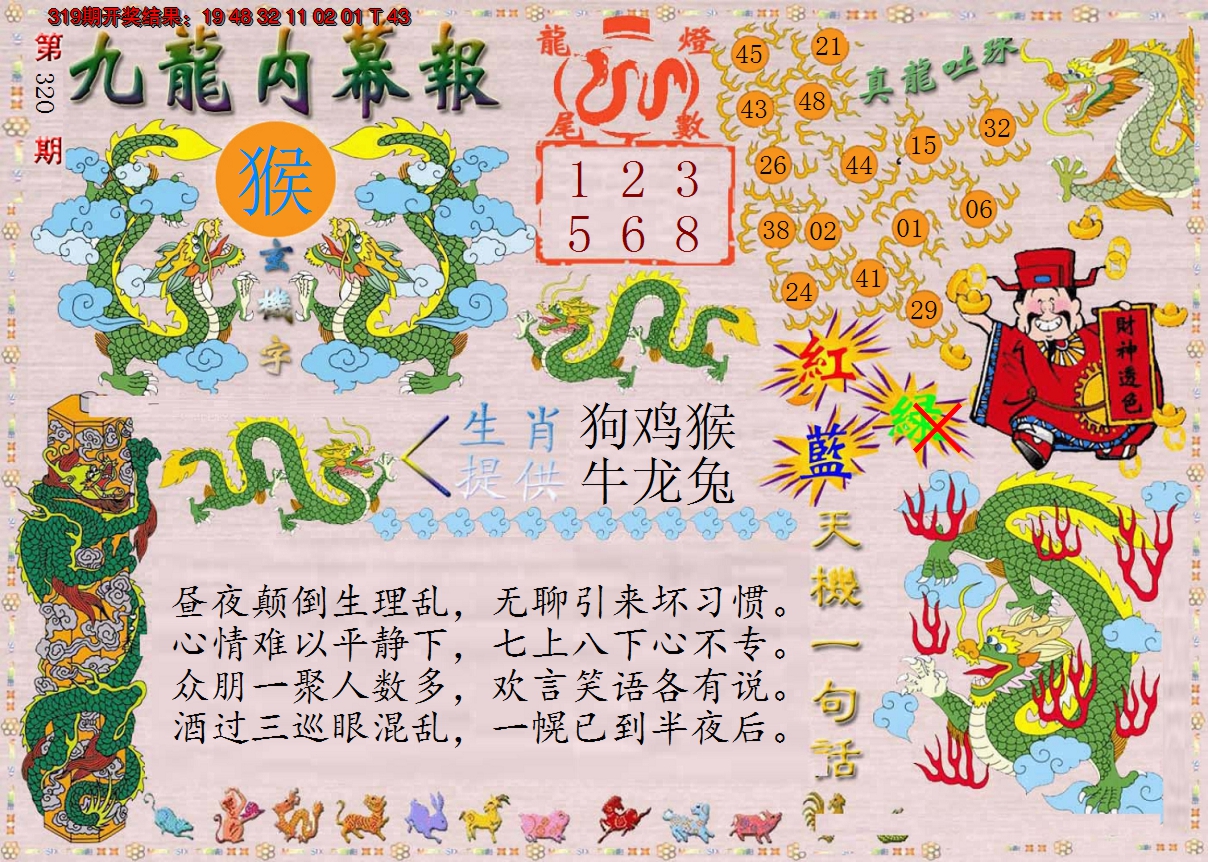 319期开奖结果：19 48 32 11 02 01 T 43
第320期
九龍内幕報
猴
玄機字
龍燈
尾數
1 2 3
5 6 8
真龍吐珠
45
21
43
48
26
44
15
32
38
02
01
06
24
41
29
紅
綠
藍
財神透色
生肖 狗鸡猴
提供 牛龙兔
天機一句話
昼夜颠倒生理乱，无聊引来坏习惯。
心情难以平静下，七上八下心不专。
众朋一聚人数多，欢言笑语各有说。
酒过三巡眼混乱，一幌已到半夜后。